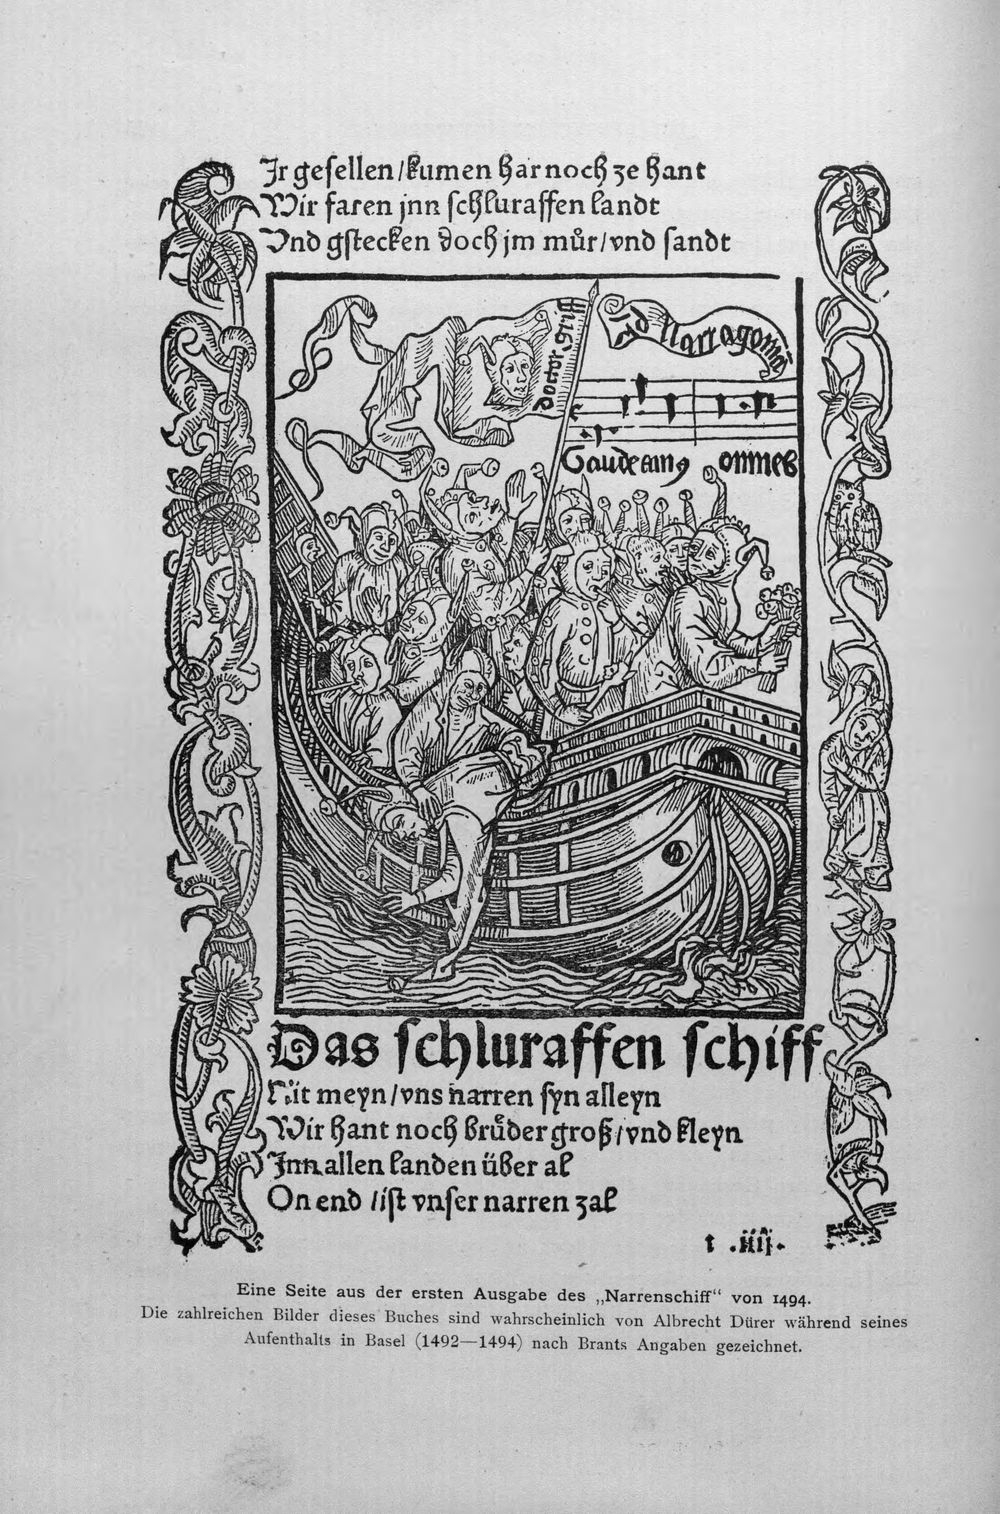 Ir gesellen / kumen har noch ze hant
Wir faren jnn schluraffen landt
Vnd gstecken doch jm můr / vnd sandt
doctor griff
ad Narragoniā
Gaudeamꝰ omnes
Das schluraffen schiff
Nit meyn / vns narren syn alleyn
Wir hant noch brůder groß / vnd kleyn
Inn allen landen über al
On end / ist vnser narren zal
t .iiij.
Eine Seite aus der ersten Ausgabe des „Narrenschiff“ von 1494.
Die zahlreichen Bilder dieses Buches sind wahrscheinlich von Albrecht Dürer während seines
Aufenthalts in Basel (1492—1494) nach Brants Angaben gezeichnet.